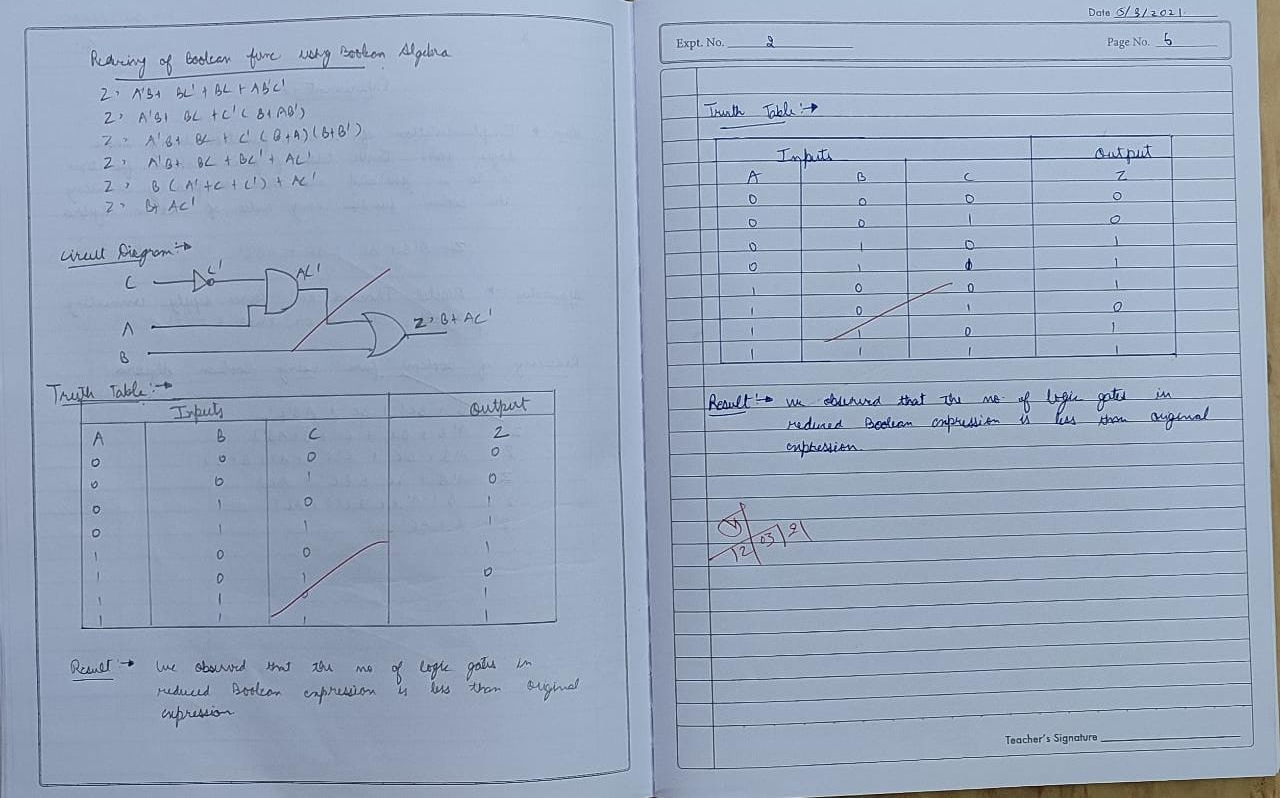 Reducing of Boolean func using Boolean Algebra
Z = A'B + BC' + BC + AB'C'
Z = A'B + BC + C' (B+AB')
Z = A'B + BC + C' (B+A) (B+B')
Z = A'B + BC + BC' + AC'
Z = B (A' + C + C') + AC'
Z = B+ AC'
Circuit Diagram :→
C C' AC'
A Z = B + AC'
B
Truth Table :→
Inputs Output
A B C Z
0 0 0 0
0 0 1 0
0 1 0 1
0 1 1 1
1 0 0 1
1 0 1 0
1 1 0 1
1 1 1 1
Result :→ we observed that the no of logic gates in
reduced Boolean expression is less than original
expression
Date 5/3/2021
Expt. No. 2 Page No. 5
Truth Table :→
Inputs Output
A B C Z
0 0 0 0
0 0 1 0
0 1 0 1
0 1 1 1
1 0 0 1
1 0 1 0
1 1 0 1
1 1 1 1
Result :→ we observed that the no. of logic gates in
reduced Boolean expression is less than original
expression.
12/03/21
Teacher's Signature